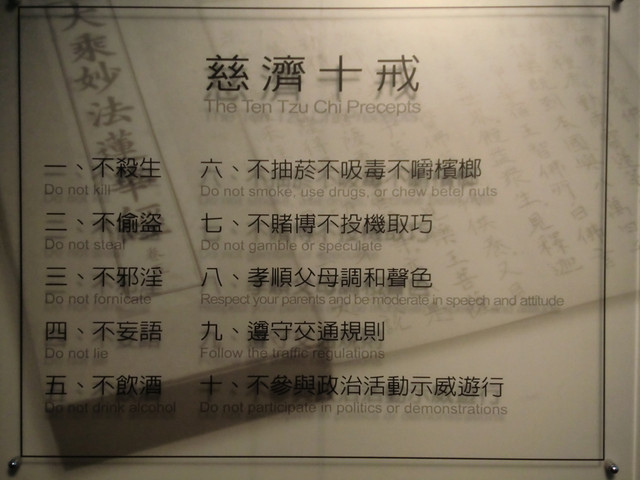 慈濟十戒
The Ten Tzu Chi Precepts
一、不殺生
Do not kill
二、不偷盜
Do not steal
三、不邪淫
Do not fornicate
四、不妄語
Do not lie
五、不飲酒
Do not drink alcohol
六、不抽菸不吸毒不嚼檳榔
Do not smoke, use drugs, or chew betel nuts
七、不賭博不投機取巧
Do not gamble or speculate
八、孝順父母調和聲色
Respect your parents and be moderate in speech and attitude
九、遵守交通規則
Follow the traffic regulations
十、不參與政治活動示威遊行
Do not participate in politics or demonstrations
大乘妙法蓮華經